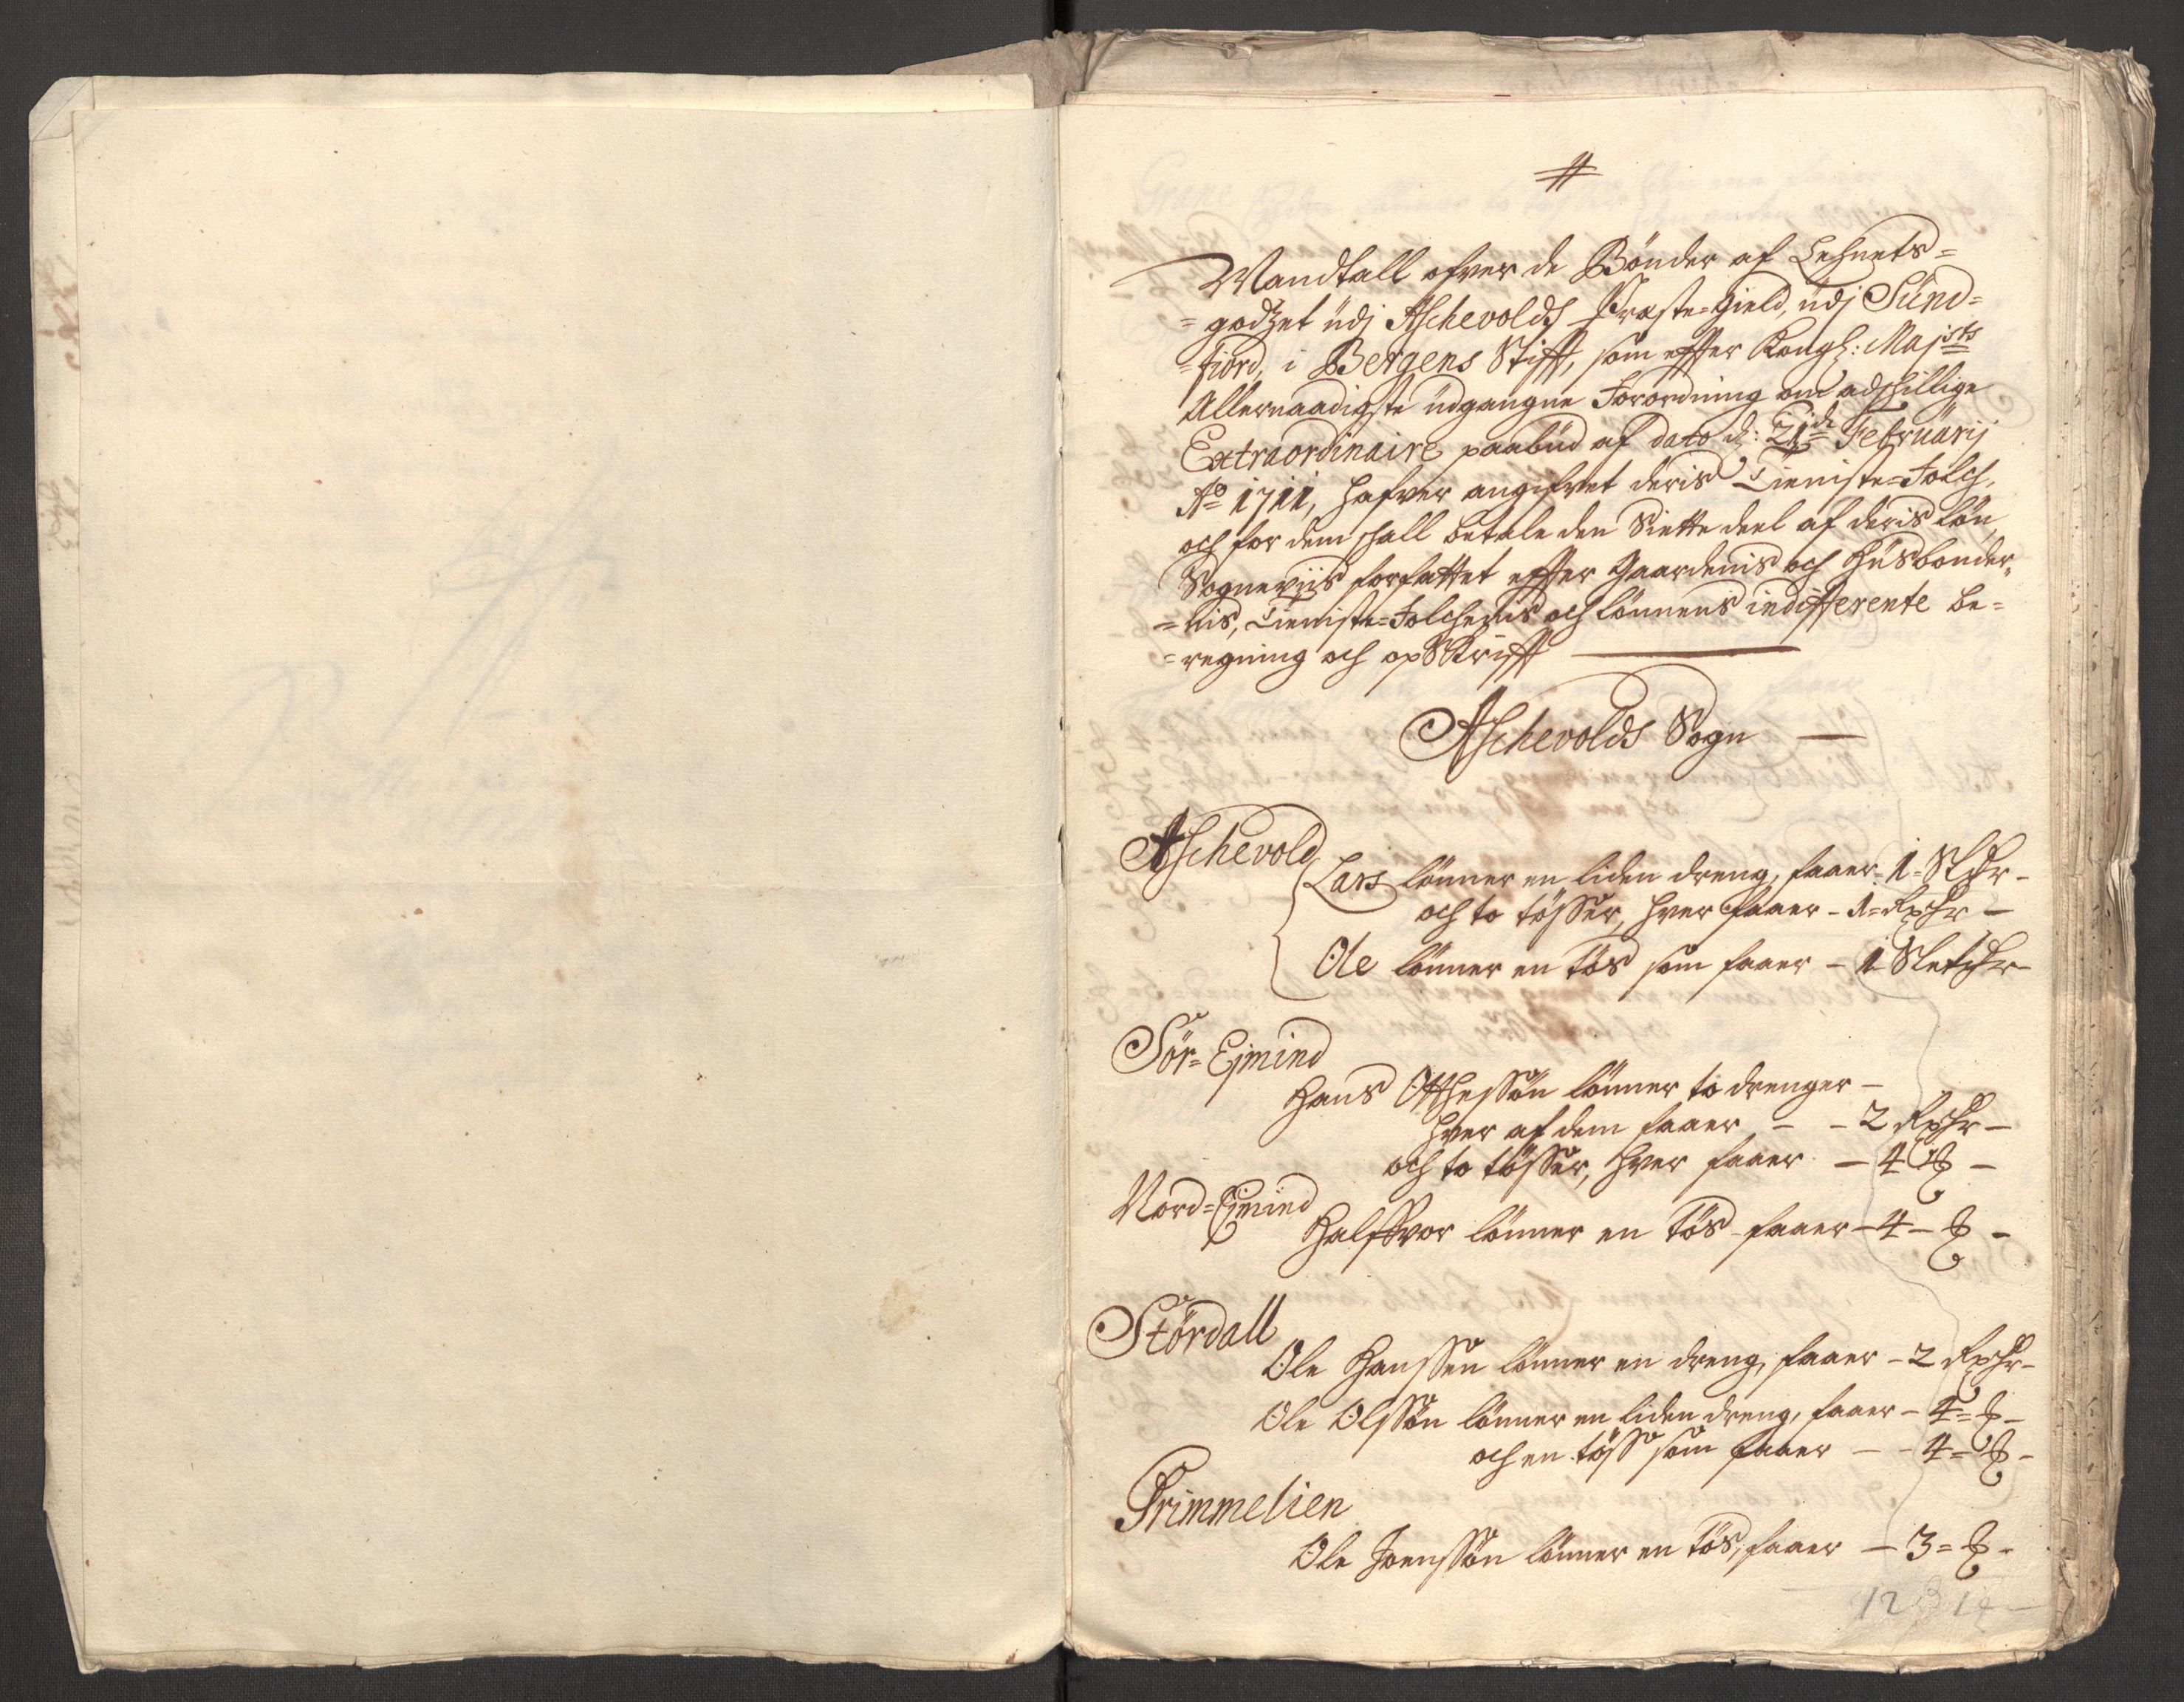 Mandtall ofver de Bønder af Lehnets=
=godzet udj Aschevolds Præste=Gield, udj Sünd=
=fiord, i Bergens Stifft, som effter Kongl: Majsts
Allernaadigste udgangne Forordning om adskillige
Extraordinaire paabud af dato d: 21de Februarij
Ao 1711, hafver angifvet deris Tieniste=Folch,
och for dem skall betale den Siette deel af deris løn,
Sogneviis forfattet effter Gaardenis och Husbonder=
=nis, Tieniste=Folchenis och lønnens indifferente be=
=regning och opSkrifft
Aschevolds Sogn
Aschevold
Lars lønner en liden dreng, faaer = 1 = Sldr -
och to tøsser, hver faaer - 1 = Rxdr -
Ole lønner en tøs som faaer - 1 Sletdr -
Sør= Ejmind
Hans Otthessøn lønner to drenger -
hver af dem faaer - - 2 Rxdr -
och to tøsser, hver faaer - 4 ß -
Nord=Ejmind
Halfvor lønner en tøs - faaer - 4 - ß -
Størdall
Ole Hanssen lønner en dreng, faaer - 2 Rxdr -
Ole Olssøn lønner en liden dreng, faaer - 4 = ß -
och en tøss som faaer - - 4 = ß -
Primmelien
Ole Joenssøn lønner en tøs, faaer - 3 = ß -